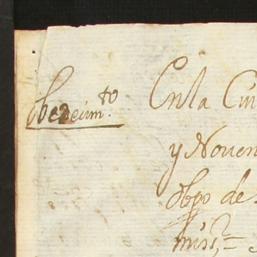 Obedecim.to
En la Ciu
y Noven
Obpo de
miss,